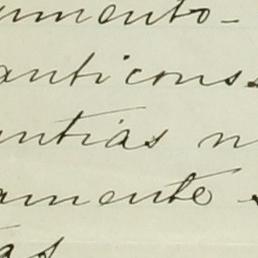 umento-
anticons
antias n
amente s
tas